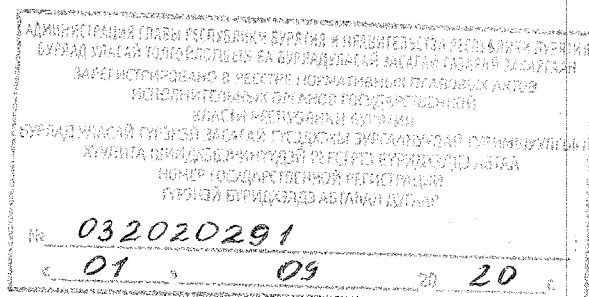 АДМИНИСТРАЦИЯ ГЛАВЫ РЕСПУБЛИКИ БУРЯТИЯ И ПРАВИТЕЛЬСТВА РЕСПУБЛИКИ БУРЯТИЯ
БУРЯАД УЛАСАЙ ТОЛГОЙЛОГШЫН БА БУРЯАД УЛАСАЙ ЗАСАГАЙ ГАЗАРАЙ ЗАХИРГААН
ЗАРЕГИСТРИРОВАНО В РЕЕСТРЕ НОРМАТИВНЫХ ПРАВОВЫХ АКТОВ
ИСПОЛНИТЕЛЬНЫХ ОРГАНОВ ГОСУДАРСТВЕННОЙ
ВЛАСТИ РЕСПУБЛИКИ БУРЯТИЯ
БУРЯАД УЛАСАЙ ГҮРЭНЭЙ ЗАСАГАЙ
НОМЕР ГОСУДАРСТВЕННОЙ РЕГИСТРАЦИИ
ГҮРЭНЭЙ БҮРИДХЭЛДЭ АБТАҺАН ДУГААР
№ 032020291
« 01 » 09 20 20 г.